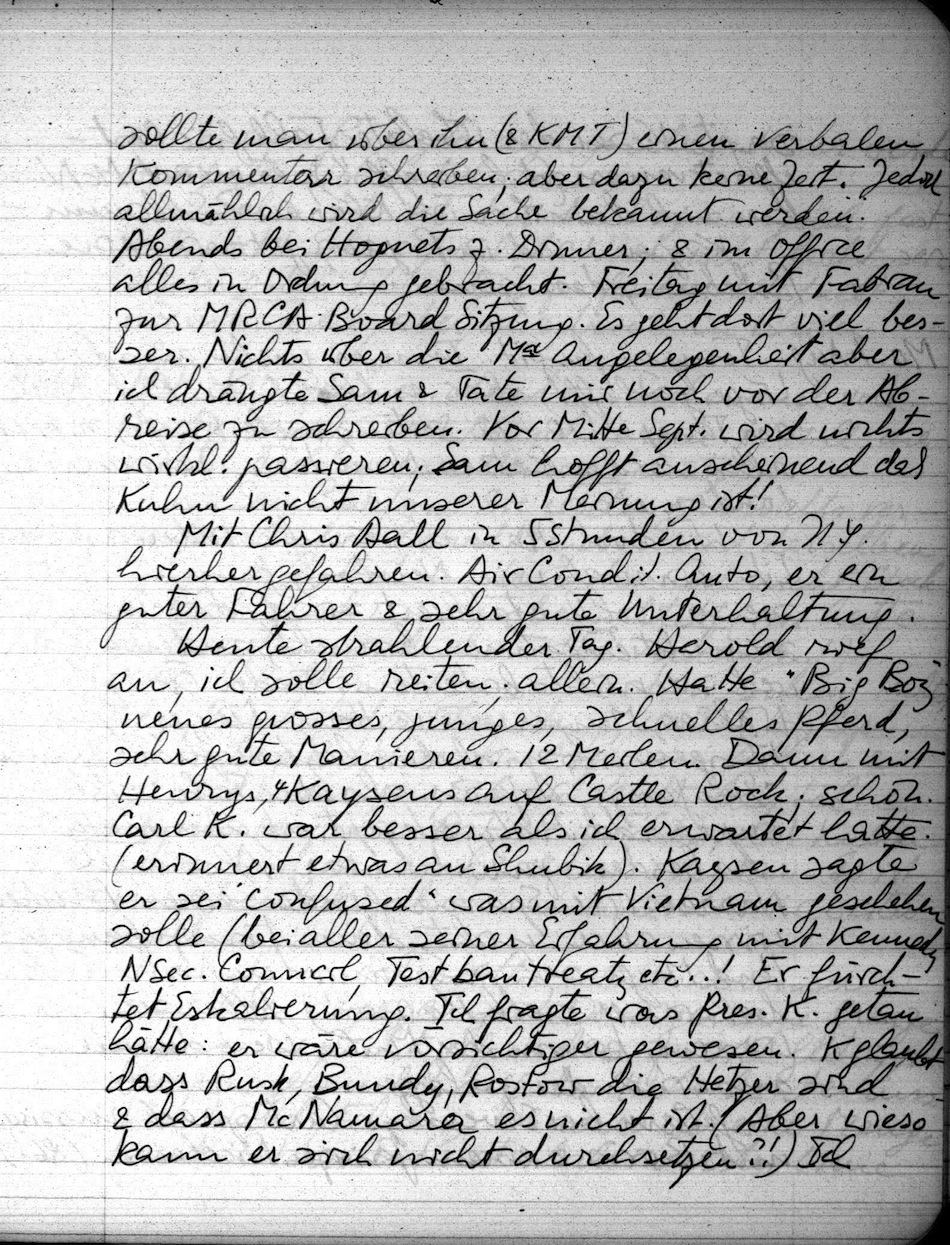 sollte man über ihn (& KMT) einen verbalen
Kommentar schreiben; aber dazu keine Zeit. Jedoch
allmählich wird die Sache bekannt werden.
Abends bei Hognets z. Dinner; & im Office
alles in Ordnung gebracht. Freitag mit Fabian
zur MRCA-Board Sitzung. Es geht dort viel bes-
ser. Nichts über die Ma Angelegenheit aber
ich drängte Sam & Tate mir noch vor der Ab-
reise zu schreiben. Vor Mitte Sept. wird nichts
wirkl. passieren; Sam hofft anscheinend das
Kuhn nicht unserer Meinung ist!
Mit Chris Aall in 5 Stunden von N.Y.
hierher gefahren. Air Condit. Auto, er ein
guter Fahrer & sehr gute Unterhaltung.
Heute strahlender Tag. Herold rief
an, ich solle reiten; allein. Hatte "Big Boy"
neues grosses, junges, schnelles Pferd,
sehr gute Manieren. 12 Meilen. Dann mit
Henrys, & Kaysens auf Castle Rock; schön.
Carl K. war besser als ich erwartet hatte.
(erinnert etwas an Shubik). Kaysen sagte
er sei "confused" was mit Vietnam geschehen
solle (bei aller seiner Erfahrung mit Kennedy,
NSec. Council, Testban treaty etc..! Er fürch-
tet Eskalierung. Ich fragte was Pres. K. getan
hätte: er wäre vorsichtiger gewesen. K glaubt
dass Rusk, Bundy, Rostow die Hetzer sind
& dass McNamara es nicht ist. (Aber wieso
kann er sich nicht durchsetzen?!) Ich